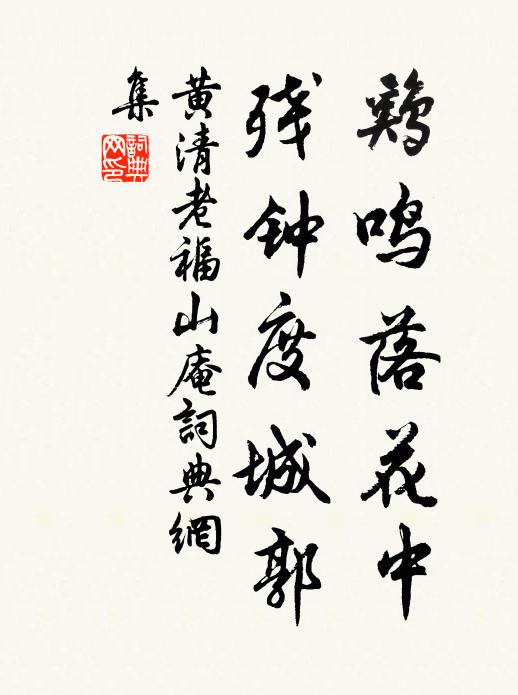 鷄鸣落花中
残钟度城郭
黄清老福山庵詞典網
集
詞典网印